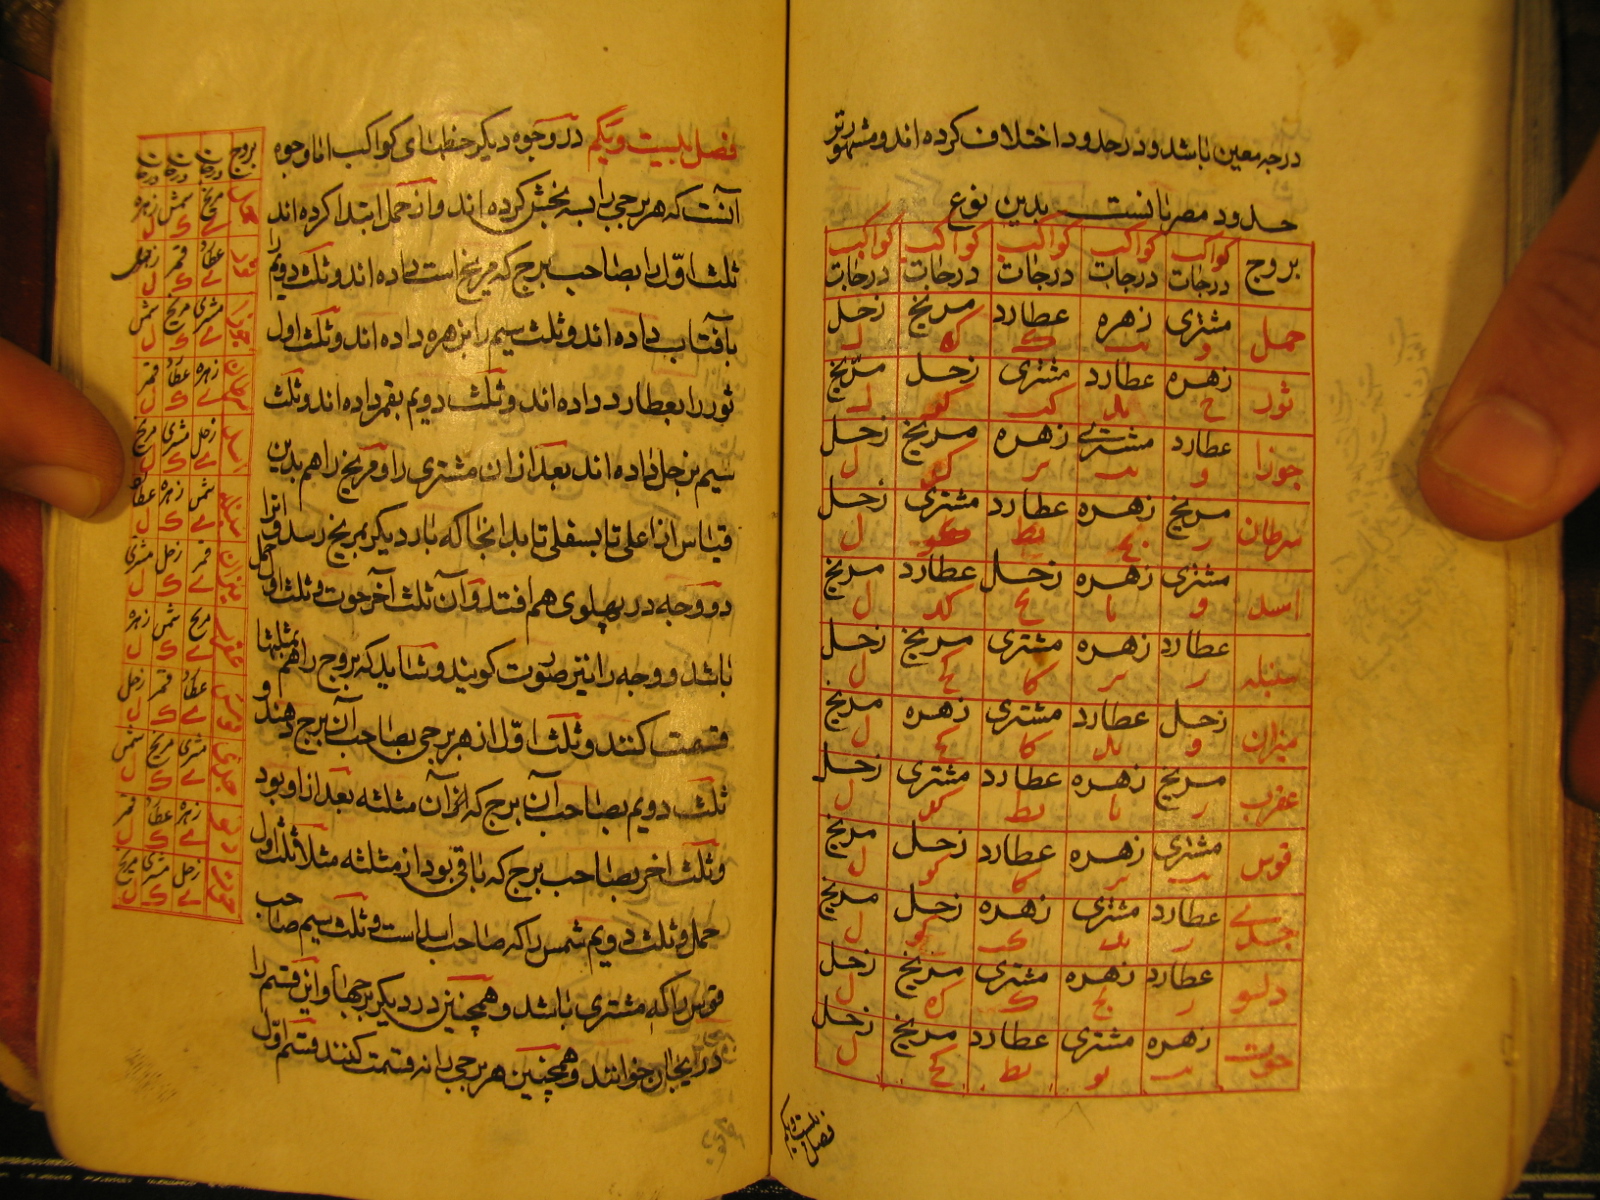 درجه معین باشد و در حدود اختلاف کرده اند و مشهورتر
حدود مصریانست بدین نوع
بروج کواکب درجات کواکب درجات کواکب درجات کواکب درجات کواکب درجات
حمل مشتری و زهره یب عطارد ک مریخ که زحل ل
ثور زهره ح عطارد ید مشتری کب زحل کو مریخ ل
جوزا عطارد و مشتری یب زهره یر مریخ کد زحل ل
سرطان مریخ ر زهره یح عطارد یط مشتری کو زحل ل
اسد مشتری و زهره یا زحل یح عطارد کد مریخ ل
سنبله عطارد ر زهره یر مشتری کا مریخ کح زحل ل
میزان زحل و عطارد ید مشتری کا زهره کح مریخ ل
عقرب مریخ ر زهره یا عطارد یط مشتری کد زحل ل
قوس مشتری یب زهره یر عطارد کا زحل کو مریخ ل
جدی عطارد ر مشتری ید زهره کب زحل کو مریخ ل
دلو عطارد ر زهره یح مشتری ک مریخ که زحل ل
حوت زهره یب مشتری یو عطارد یط مریخ کح زحل ل
فصل بیست و یکم
فصل بیست و یکم در وجوه دیگر حظهای کواکب اما وجوه
آنست که هر برجی را بسه بخش کرده اند و از حمل ابتدا کرده اند
ثلث اول را بصاحب برج که مریخ است داده اند و ثلث دویم را
بآفتاب داده اند و ثلث سیم را بزهره داده اند و ثلث اول
ثور را بعطارد داده اند و ثلث دویم بقمر داده اند و ثلث
سیم بزحل داده اند بعد از ان مشتری را و مریخ را هم بدین
قیاس از اعلی تا بسفلی تا بدانجا که بار دیگر بمریخ رسد و انرا
دو وجه در پهلوی هم افتد و آن ثلث آخر حوت و ثلث اول حمل
باشد و وجه را نیز صورت کویند و شاید که بروج را هم بمثلثها
قسمت کنند و ثلث اول از هر برجی بصاحب آن برج دهند و
ثلث دویم بصاحب آن برج که از آن مثلثه بعد از او بود
و ثلث اخر بصاحب برج که باقی بود از مثلثه مثلا ثلث اول
حمل و ثلث دویم شمس را که صاحب اسد است و ثلث سیم صاحب
قوس را که مشتری باشد و همچنین در دیگر برجها و این قسم را
دریجان خوانند و همچنین هر برجی را نه قسمت کنند قسم اول
بروج
حمل مریخ ی شمس ک زهره ل
ثور عطارد ی قمر ک زحل ل
جوزا مشتری ی مریخ ک شمس ل
سرطان زهره ی عطارد ک قمر ل
اسد زحل ی مشتری ک مریخ ل
سنبله شمس ی زهره ک عطارد ل
میزان قمر ی زحل ک مشتری ل
عقرب مریخ ی شمس ک زهره ل
قوس عطارد ی قمر ک زحل ل
جدی مشتری ی مریخ ک شمس ل
دلو زهره ی عطارد ک قمر ل
حوت زحل ی مشتری ک مریخ ل